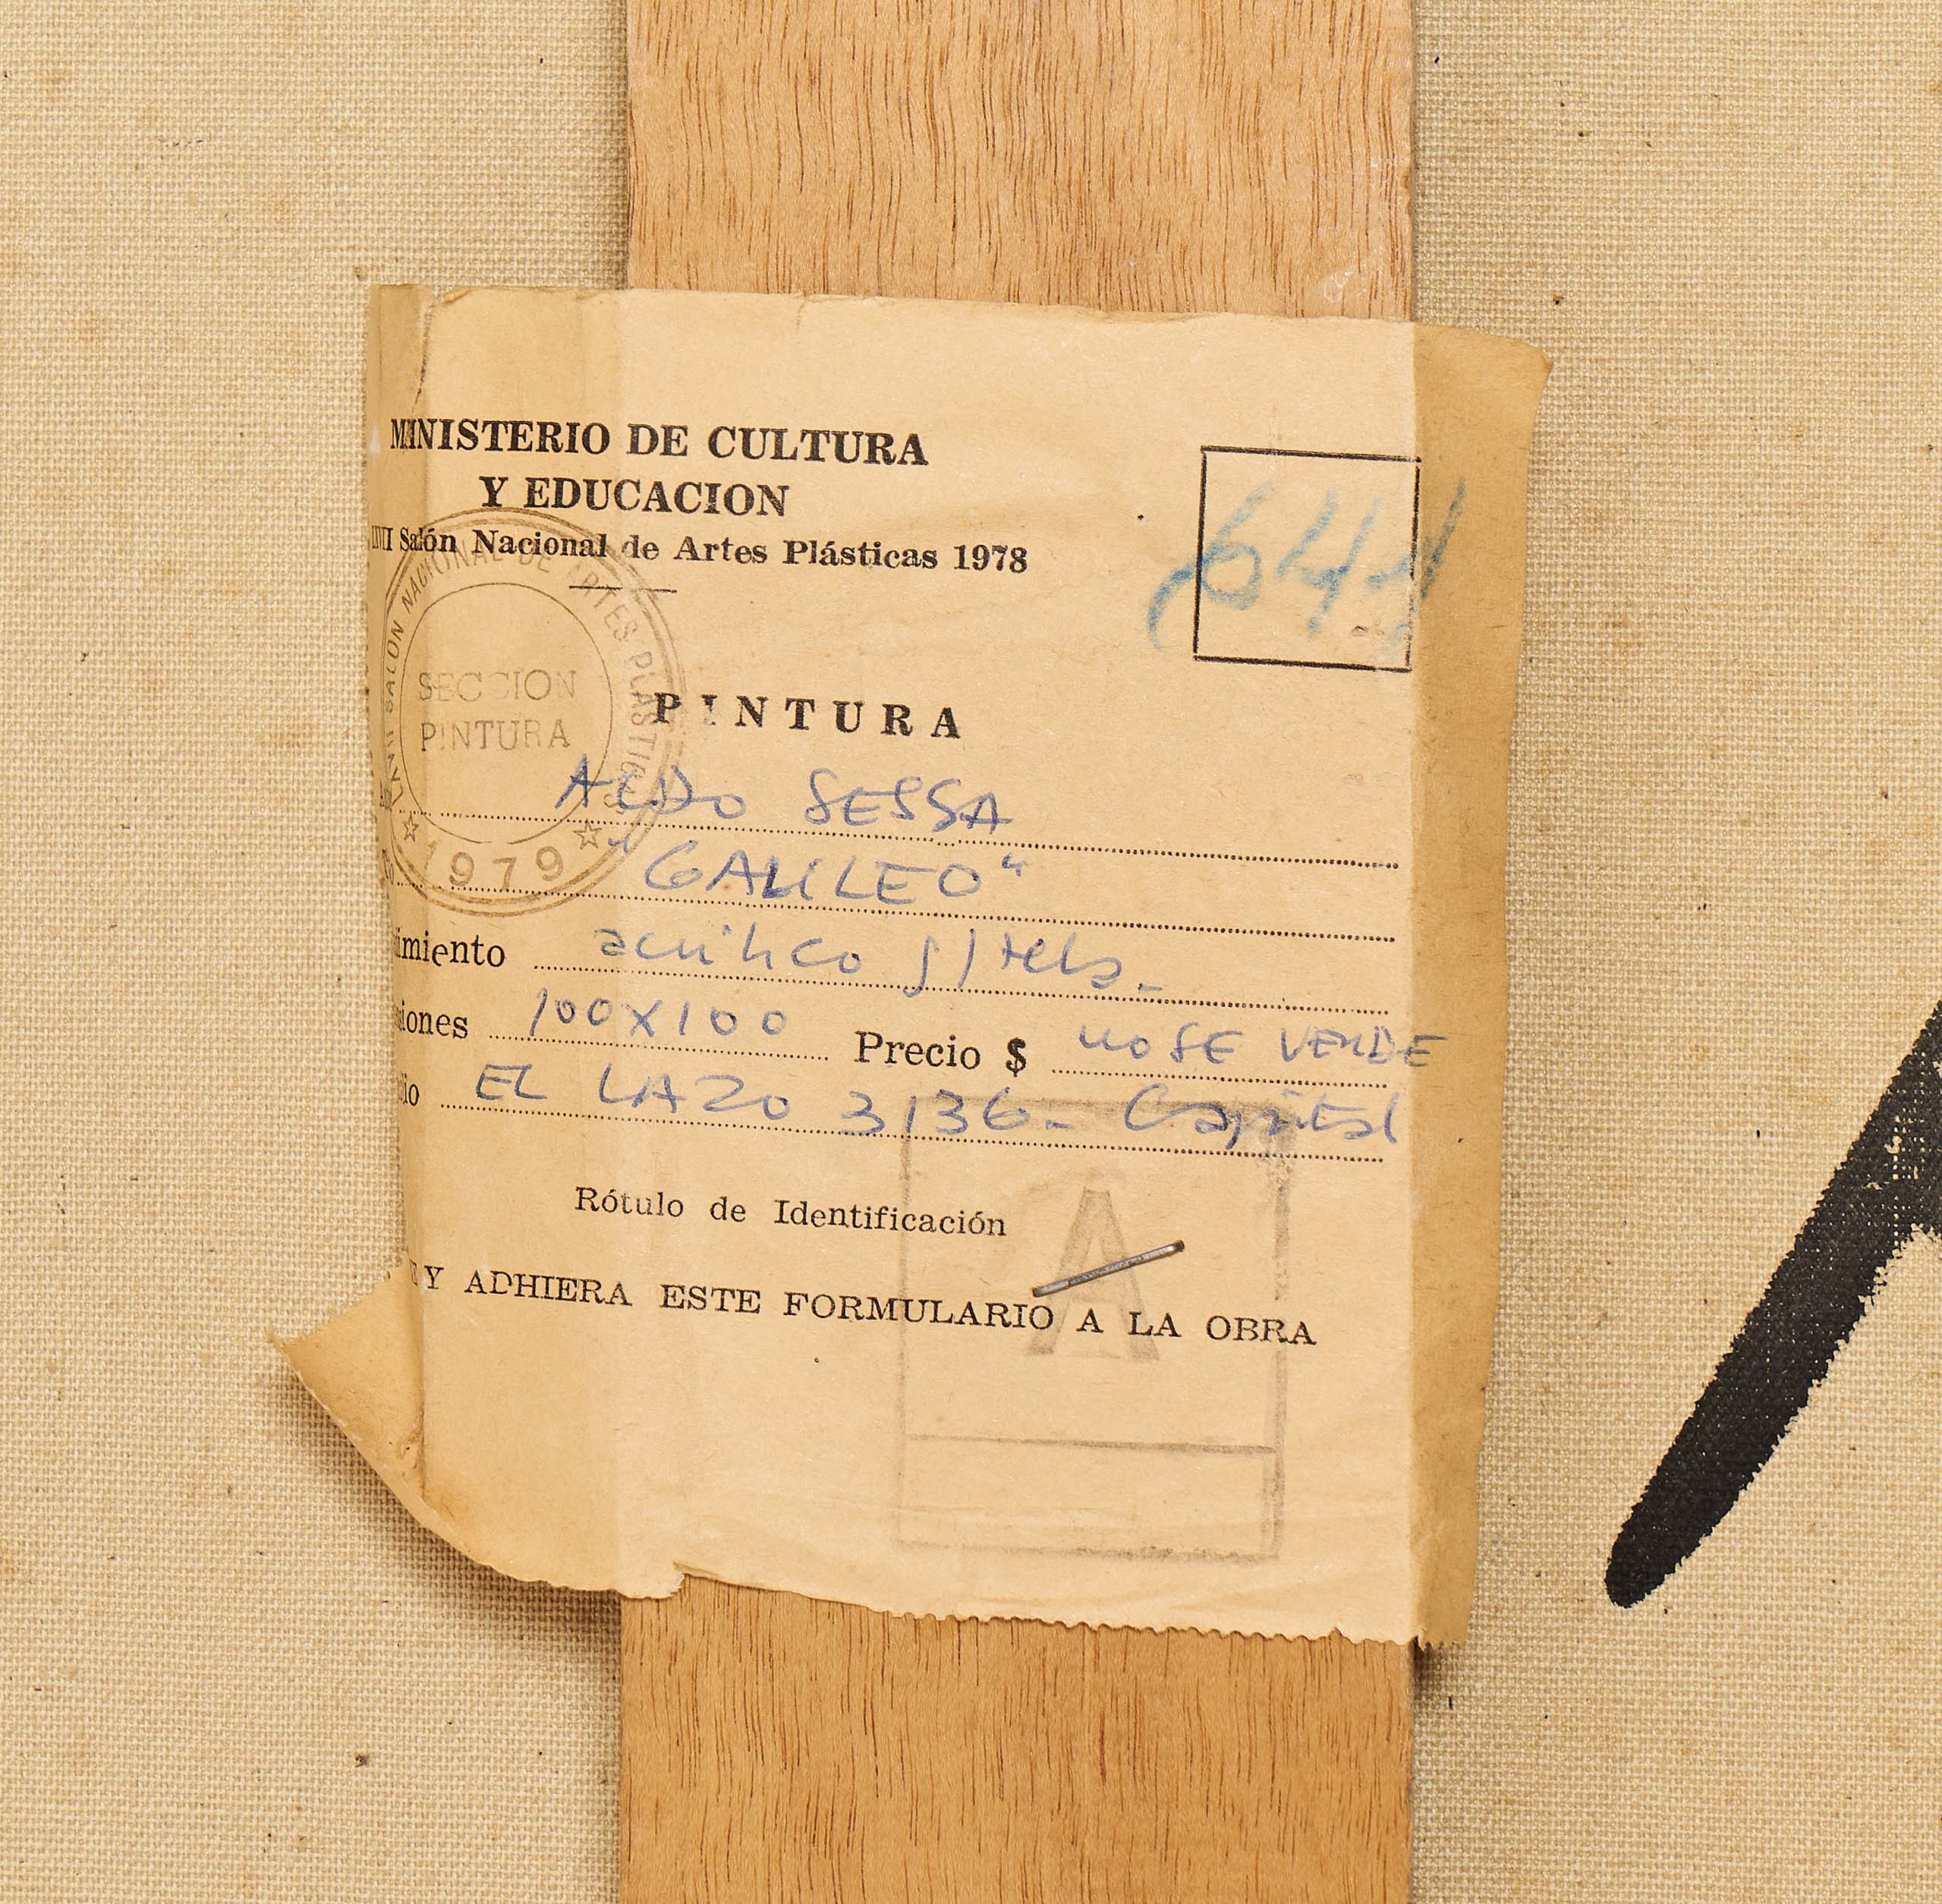 MINISTERIO DE CULTURA
Y EDUCACION
Salón Nacional de Artes Plásticas 1978
SALON NACIONAL DE ARTES PLASTICAS
SECCION
PINTURA
1979
PINTURA
ALDO SESSA
"GALILEO"
imiento acrílico s/tela.-
siones 100X100 Precio $ NO SE VENDE
io EL LAZO 3136- Capital
Rótulo de Identificación
E Y ADHIERA ESTE FORMULARIO A LA OBRA
A